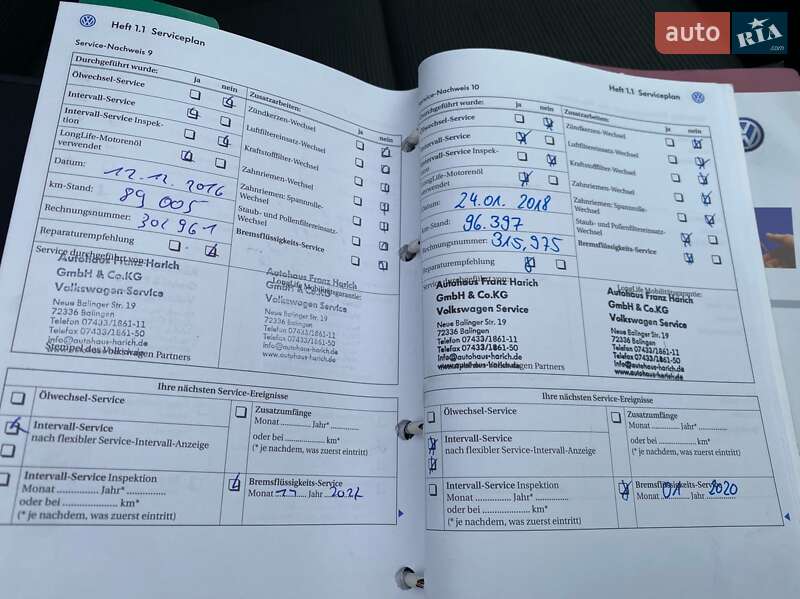 auto RIA .com
Heft 1.1 Serviceplan
Service-Nachweis 9
Durchgeführt wurde: ja nein Zusatzarbeiten: ja nein
Ölwechsel-Service
Intervall-Service
Intervall-Service Inspek-
tion
LongLife-Motorenöl
verwendet
Zündkerzen-Wechsel
Luftfiltereinsatz-Wechsel
Kraftstofffilter-Wechsel
Zahnriemen-Wechsel
Zahnriemen: Spannrolle-
Wechsel
Staub- und Pollenfiltereinsatz-
Wechsel
Bremsflüssigkeits-Service
Datum: 12.12.2016
km-Stand: 89 005
Rechnungsnummer: 301961
Reparaturempfehlung
Service durchgeführt von:
Autohaus Franz Harich
GmbH & Co.KG
Volkswagen-Service
Neue Balinger Str. 19
72336 Balingen
Telefon 07433/1861-11
Telefax 07433/1861-50
info@autohaus-harich.de
Stempel des Volkswagen Partners
LongLife Mobilitätsgarantie:
Autohaus Franz Harich
GmbH & Co.KG
Volkswagen Service
Neue Balinger Str. 19
72336 Balingen
Telefon 07433/1861-11
Telefax 07433/1861-50
info@autohaus-harich.de
www.autohaus-harich.de
Ihre nächsten Service-Ereignisse
Ölwechsel-Service
Intervall-Service
nach flexibler Service-Intervall-Anzeige
Zusatzumfänge
Monat ............ Jahr* ............
oder bei ............ km*
(* je nachdem, was zuerst eintritt)
Intervall-Service Inspektion
Monat ............ Jahr* ............
oder bei ............ km*
(* je nachdem, was zuerst eintritt)
Bremsflüssigkeits-Service
Monat Jahr
Heft 1.1 Serviceplan
Service-Nachweis 10
Durchgeführt wurde: ja nein Zusatzarbeiten: ja nein
Ölwechsel-Service
Intervall-Service
Intervall-Service Inspek-
tion
LongLife-Motorenöl
verwendet
Zündkerzen-Wechsel
Luftfiltereinsatz-Wechsel
Kraftstofffilter-Wechsel
Zahnriemen-Wechsel
Zahnriemen: Spannrolle-
Wechsel
Staub- und Pollenfiltereinsatz-
Wechsel
Bremsflüssigkeits-Service
Datum: 24.01.2018
km-Stand: 96.397
Rechnungsnummer: 315,975
Reparaturempfehlung
Service durchgeführt von:
Autohaus Franz Harich
GmbH & Co.KG
Volkswagen Service
Neue Balinger Str. 19
72336 Balingen
Telefon 07433/1861-11
Telefax 07433/1861-50
info@autohaus-harich.de
www.autohaus-harich.de
LongLife Mobilitätsgarantie:
Autohaus Franz Harich
GmbH & Co.KG
Volkswagen Service
Neue Balinger Str. 19
72336 Balingen
Telefon 07433/1861-11
Telefax 07433/1861-50
info@autohaus-harich.de
www.autohaus-harich.de
Ihre nächsten Service-Ereignisse
Ölwechsel-Service
Intervall-Service
nach flexibler Service-Intervall-Anzeige
Zusatzumfänge
Monat ............ Jahr* ............
oder bei ............ km*
(* je nachdem, was zuerst eintritt)
Intervall-Service Inspektion
Monat ............ Jahr* ............
oder bei ............ km*
(* je nachdem, was zuerst eintritt)
Bremsflüssigkeits-Service
Monat 01 Jahr 2020